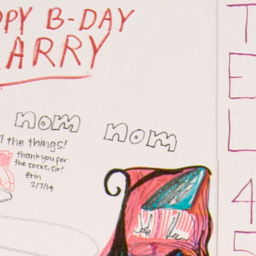 PPY B-DAY
ARRY
nom
nom
ll the things!
thank you for
the socks, sir!
Erin
2/7/14
T
E
L
4
5